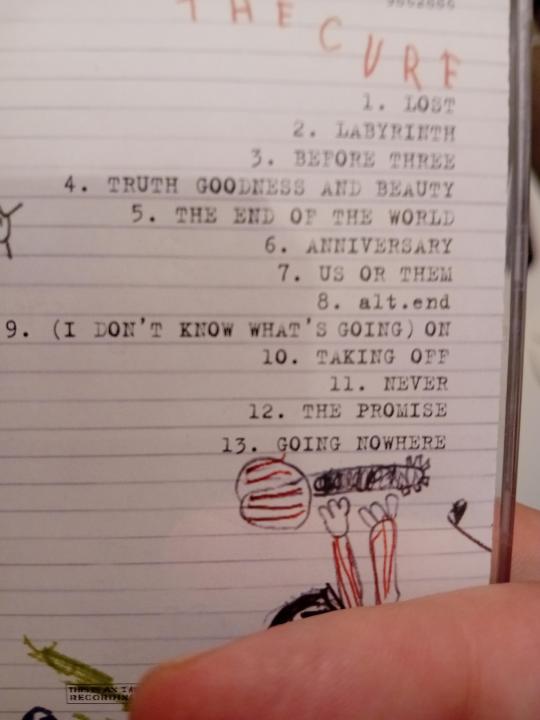 THE
CURE
1. LOST
2. LABYRINTH
3. BEFORE THREE
4. TRUTH GOODNESS AND BEAUTY
5. THE END OF THE WORLD
6. ANNIVERSARY
7. US OR THEM
8. alt.end
9. (I DON'T KNOW WHAT'S GOING) ON
10. TAKING OFF
11. NEVER
12. THE PROMISE
13. GOING NOWHERE